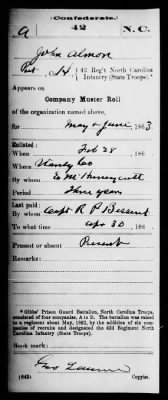 (Confederate.)
A 42 N.C.
John Almon
Pvt, Co. H, 42 Reg't North Carolina
Infantry (State Troops).*
Appears on
Company Muster Roll
of the organization named above,
for May & June, 1863
Enlisted:
When Feb 28, 186
Where Stanly Co
By whom E. McHoneycutt
Period three years
Last paid:
By whom Capt R P
To what time Apr 30, 186
Present or absent Present
Remarks:
*Gibbs' Prison Guard Battalion, North Carolina Troops,
consisted of four companies, A to D. The battalion was raised
to a regiment about May, 1862, by the addition of six com-
panies of recruits and designated the 42d Regiment North
Carolina Infantry (State Troops).
Book mark:
(642) Copyist.